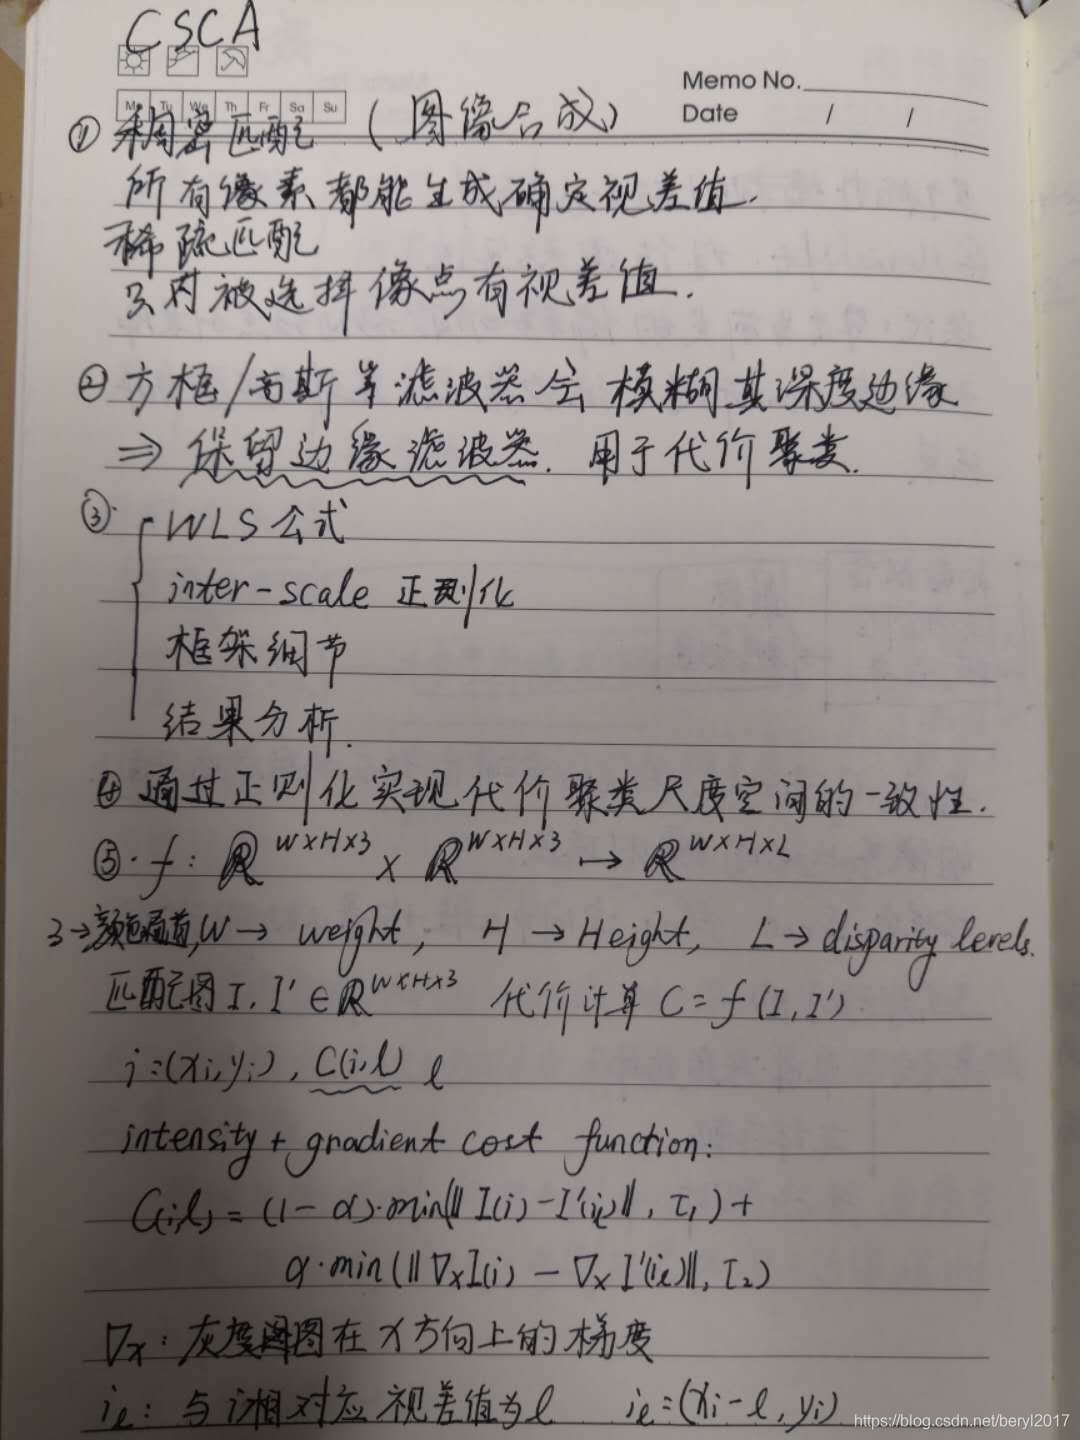 CSCA
Memo No.
Mo Tu We Th Fr Sa Su
Date / /
① 稠密匹配 (图像合成)
所有像素都能生成确定视差值.
稀疏匹配
只对被选择像点有视差值.
② 方框/高斯等滤波器会模糊其深度边缘
⇒ 保留边缘滤波器. 用于代价聚类.
③ WLS公式
inter-scale 正则化
框架细节
结果分析.
④ 通过正则化实现代价聚类尺度空间的一致性.
⑤. f: ℝ^{W×H×3} × ℝ^{W×H×3} ↦ ℝ^{W×H×L}
3→颜色通道, W→ weight, H → Height, L→ disparity levels.
匹配图 I, I' ∈ ℝ^{W×H×3} 代价计算 C = f(I, I')
i=(xi, yi), C(i,l) l
intensity + gradient cost function:
C(i,l) = (1-α)·min(‖I(i)-I'(il)‖, τ1) +
α·min(‖∇xI(i) - ∇xI'(il)‖, τ2)
∇x: 灰度图在x方向上的梯度
il: 与i相对应视差值为l il=(xi-l, yi)
https://blog.csdn.net/beryl2017